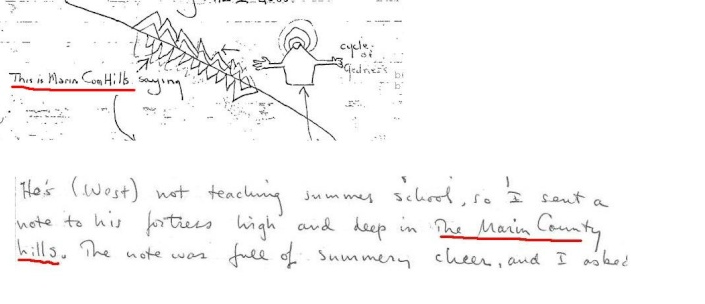 cycle
of
This is Marin Con Hills saying
He's (West) not teaching summer school, so I sent a
note to his fortress high and deep in The Marin County
hills. The note was full of summery cheer, and I asked